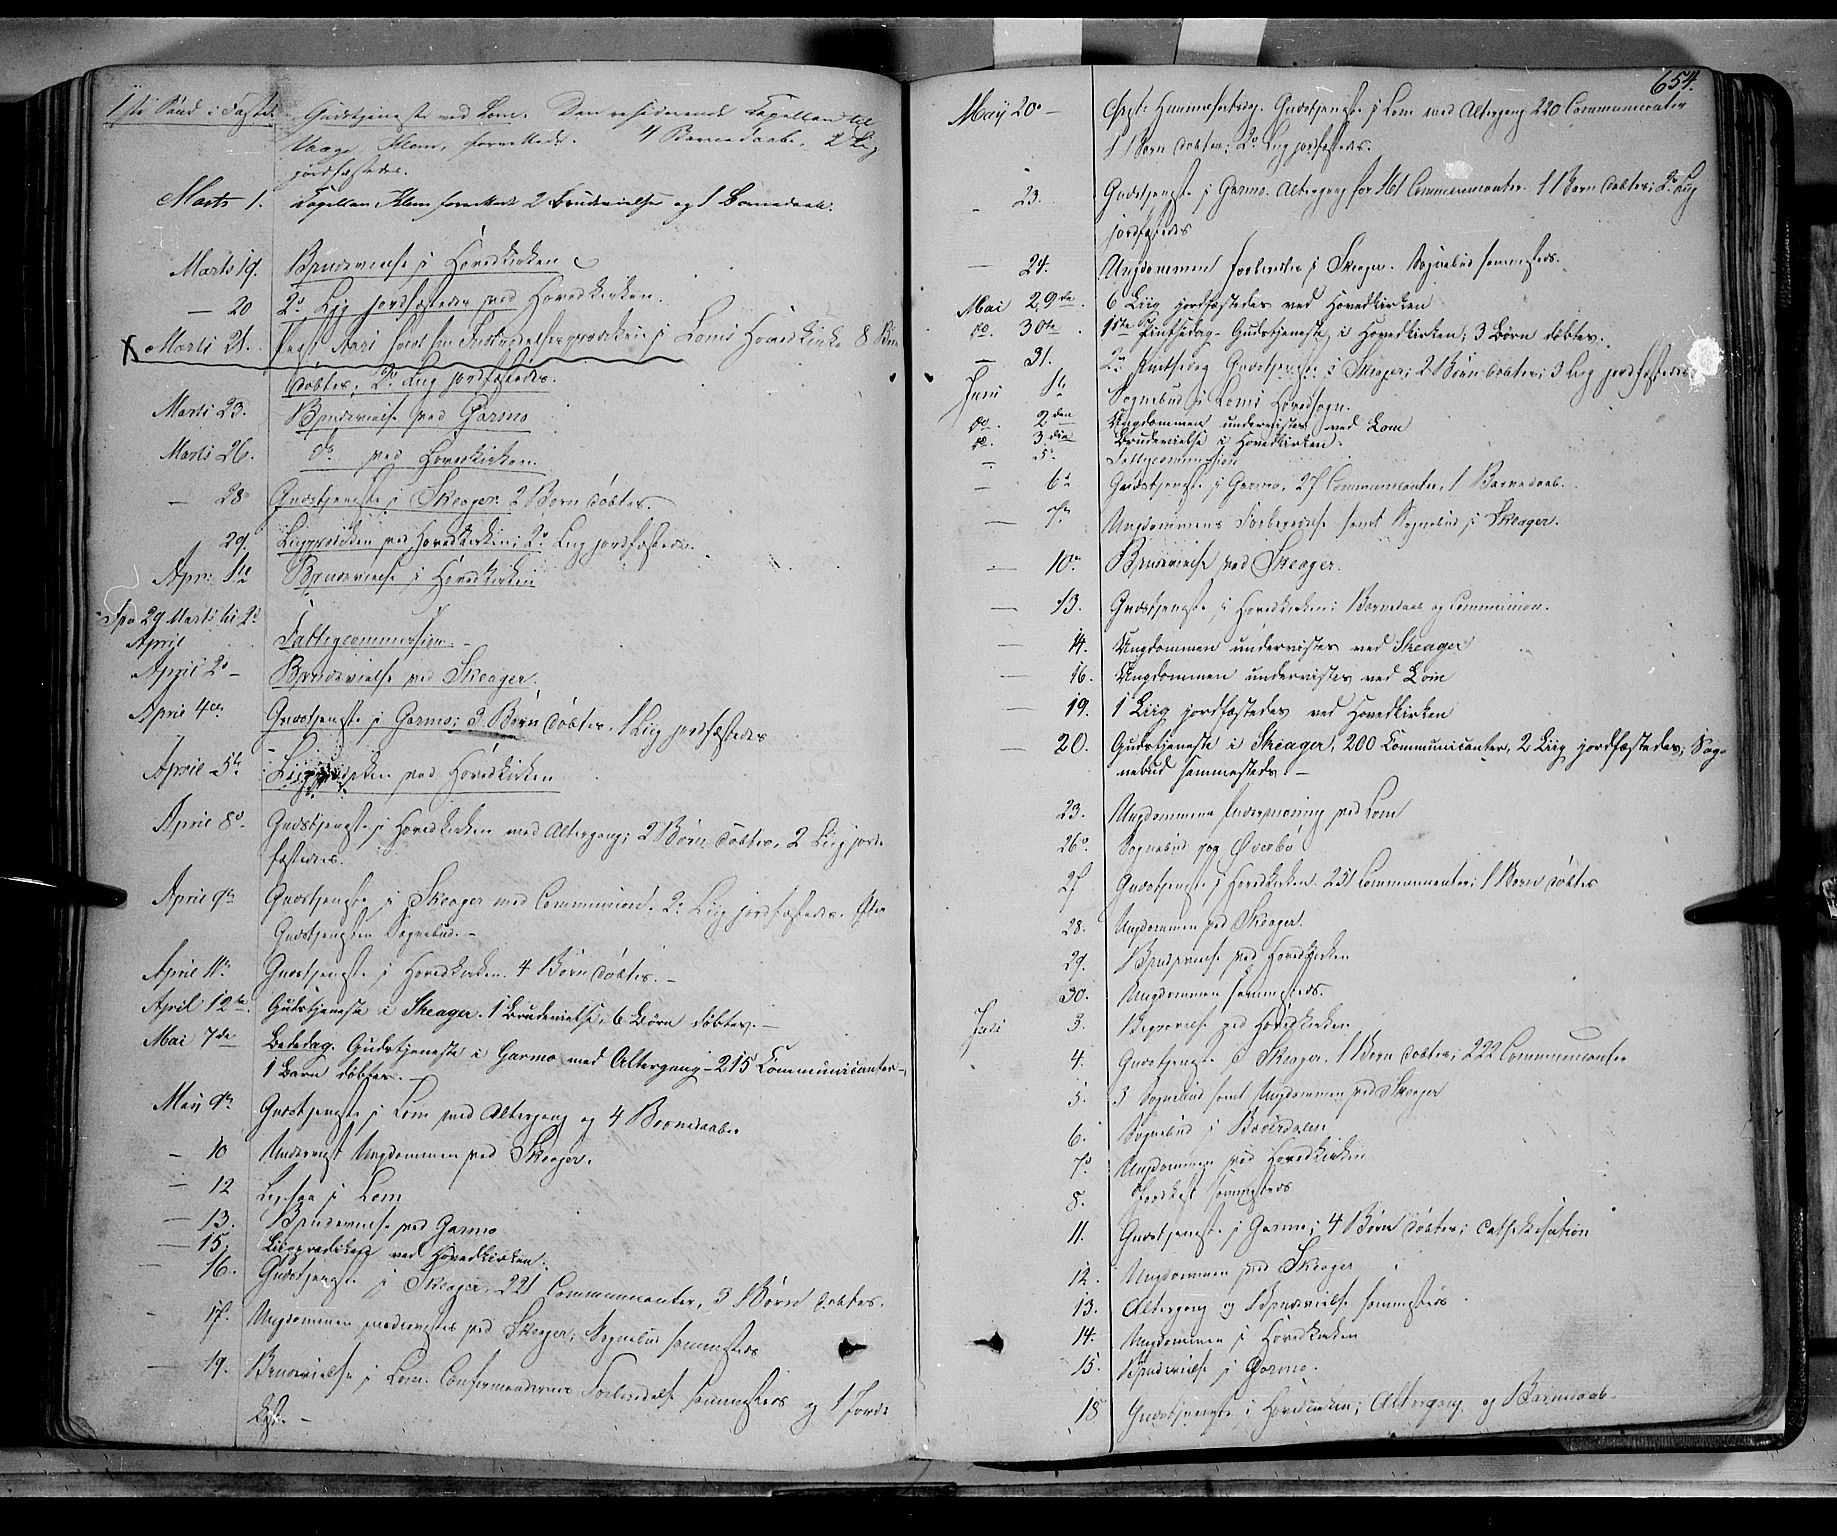 1ste Sønd. i Faste. Gudstjeneste ved Lom. Den residerende Capellan til
Vaage, Klem, forrettede. 4 Barnedaabe, 2 Liig
jordfæstedes.
Marts 1. Capellan Klem forrettede 2 Brudevielse og 1 Barnedaab.
Marts 19. Brudevielse i Hovedkirken
— 20 2de Liig jordfæstedes ved Hovedkirken.
Marts 21. i Loms Hovedkirke 8 Børn
døbtes, 2de Liig jordfæstedes.
Marts 23. Brudevielse ved Garmo
Marts 26. do ved Hovedkirken.
— 28 Gudstjeneste i Skeager. 2 Børn døbtes.
29. Liigprædiken ved Hovedkirken; 2de Liig jordfæstedes.
Apr: 1ste Brudevielse i Hovedkirken
Fra 29 Marts til 2de
April Fattigcommission. –
April 2de – Brudevielse ved Skeager.
April 4de Gudstjeneste i Garmo; 3 Børn døbtes. 1 Liig jordfæstedes
April 5te Liigprædiken ved Hovedkirken
April 8de Gudstjeneste i Hovedkirken med Altergang; 2 Børn døbtes, 2 Liig jord-
fæstedes.
April 9de Gudstjeneste i Skeager med Communion. 2de Liig jordfæstedes. Efter
Gudstjenesten Sognebud. –
April 11te Gudstjeneste i Hovedkirken. 4 Børn døbtes. –
April 12te. Gudstjeneste i Skeager. 1 Brudevielse, 6 Børn døbtes. –
Mai 7de Bededag. Gudstjeneste i Garmo med Altergang – 215 Kommunicanter –
1 Barn døbtes. –
Maij 9de Gudstjeneste i Lom med Altergang og 4 Barnedaabe
— 10 Undervist Ungdommen ved Skeager.
— 12 i Lom
— 13. Brudevielse ved Garmo
— 15. Liigprædiken ved Hovedkirken.
16. Gudstjeneste i Skeager, 221 Communicanter, 3 Børn døbtes.
17. Ungdommen undervistes ved Skeager; Sognebud sammesteds
— 19. Brudevielse i Lom. Confirmandernes Forberedelse sammesteds og 1 Jorde-
fæst. –
654.
Maij 20de — Christi Himmelfartsdag. Gudstjeneste i Lom med Altergang 220 Communicanter
1 Barn døbtes; 2de Liig jordfæstedes.
— 23. Gudstjeneste i Garmo. Altergang for 161 Communicanter. 1 Barn døbtes; 2de Liig
jordfæstedes
— 24. Ungdommen forberedtes i Skeager. Sognebud sammesteds.
Mai 29de. 6 Liig jordfæstedes ved Hovedkirken
do. 30te 1ste Pintsedag – Gudstjeneste i Hovedkirken; 3 Børn døbtes.
— 31. 2den Pintsedag Gudstjeneste i Skeager; 2 Børn døbtes; 3 Liig jordfæstedes
Juni 1ste Sognebud i Loms Hovedsogn.
do. 2den Ungdommen undervistes ved Lom
do. 3die Brudevielse i Hovedkirken.
— 5te Fattigcommission
— 6te Gudstjeneste i Garmo, 27 Communicanter, 1 Barnedaab.
— 7de Ungdommens Forberedelse samt Sognebud i Skeager.
— 10de Brudevielse ved Skeager.
— 13. Gudstjeneste i Hovedkirken; Barnedaab og Communion.
— 14. Ungdommen undervistes ved Skeager
— 16. Ungdommen undervistes ved Lom
— 19. 1 Liig jordfæstedes ved Hovedkirken
— 20. Gudstjeneste i Skeager, 200 Kommunicanter, 2 Liig jordfæstedes; Sog-
nebud sammesteds. –
23. Ungdommens Underviisning ved Lom
26de. Sognebud paa Øverbø
27 Gudstjeneste i Hovedkirken. 251 Communicanter; 1 Barn døbtes
28. Ungdommen ved Skeager.
29. Brudevielse ved Hovedkirken
30. Ungdommen sammesteds.
Juli 3. Begravelse ved Hovedkirken
4. Gudstjeneste i Skeager. 1 Barn døbtes; 222 Communicanter
5. 3 Sognebud samt Ungdommen ved Skeager
6. Sognebud i Bæverdalen
7de Ungdommen ved Hovedkirken
8. Jordfæst sammesteds
11. Gudstjeneste i Garmo; 4 Børn døbtes; Cathekisation
12. Ungdommen ved Skeager
13. Altergang og Brudevielse sammesteds.
14. Ungdommen i Hovedkirken
15. Brudevielse i Garmo.
18 Gudstjeneste i Hovedkirken; Altergang og Barnedaab.